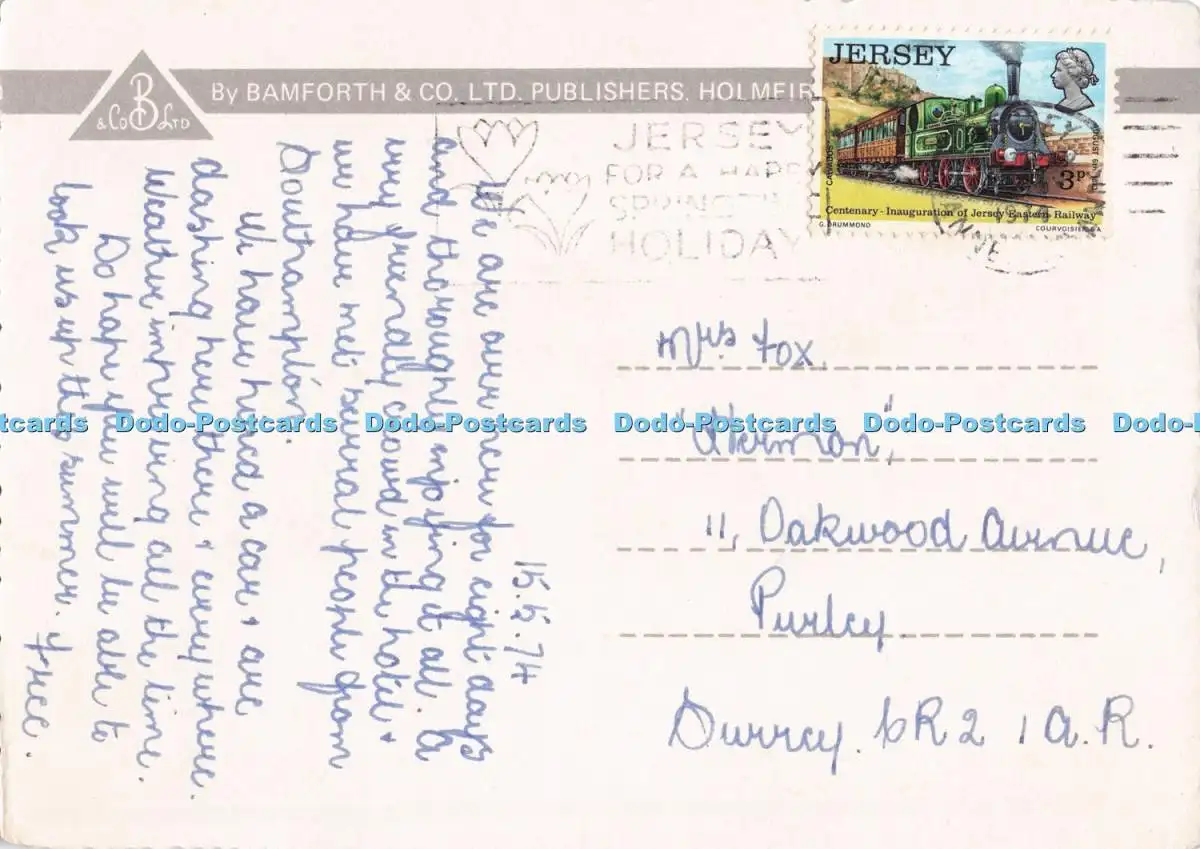 By BAMFORTH & CO. LTD. PUBLISHERS. HOLMFIR
B
& Co Ltd
JERSEY
CALVADOS
3p
Centenary - Inauguration of Jersey Eastern Railway
G. DRUMMOND
COURVOISIER S.A.
JERSEY
FOR A HAPPY
SPRING
HOLIDAY
15.5.74
We are over here for eight days
and thoroughly enjoying it all. A
very friendly crowd in the hotel +
we have met several people from
Southampton.
We have hired a car + are
dashing here, there + every where.
Weather improving all the time.
Do hope you will be able to
look us up this summer.
Mrs Fox.
11, Oakwood Avenue,
Purley.
Surrey. CR2 1A.R.
Dodo-Postcards Dodo-Postcards Dodo-Postcards Dodo-Postcards